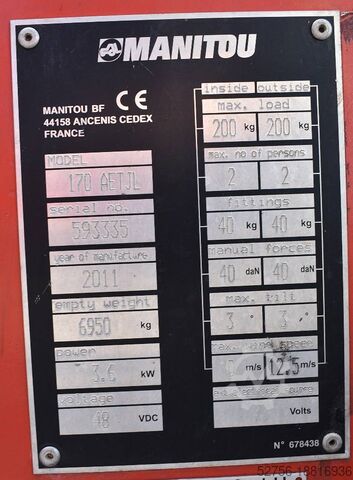 MANITOU
MANITOU BF CE
44158 ANCENIS CEDEX
FRANCE
MODEL
170 AETJL
serial no.
593335
year of manufacture
2011
empty weight
6950 kg
power
3.6 kW
voltage
48 VDC
inside outside
max. load
200 kg 200 kg
max. no of persons
2 2
fittings
40 kg 40 kg
manual forces
40 daN 40 daN
max. tilt
3 ° 3 °
max. wind speed
m/s 12.5 m/s
Volts
N° 678438
52756-18816936